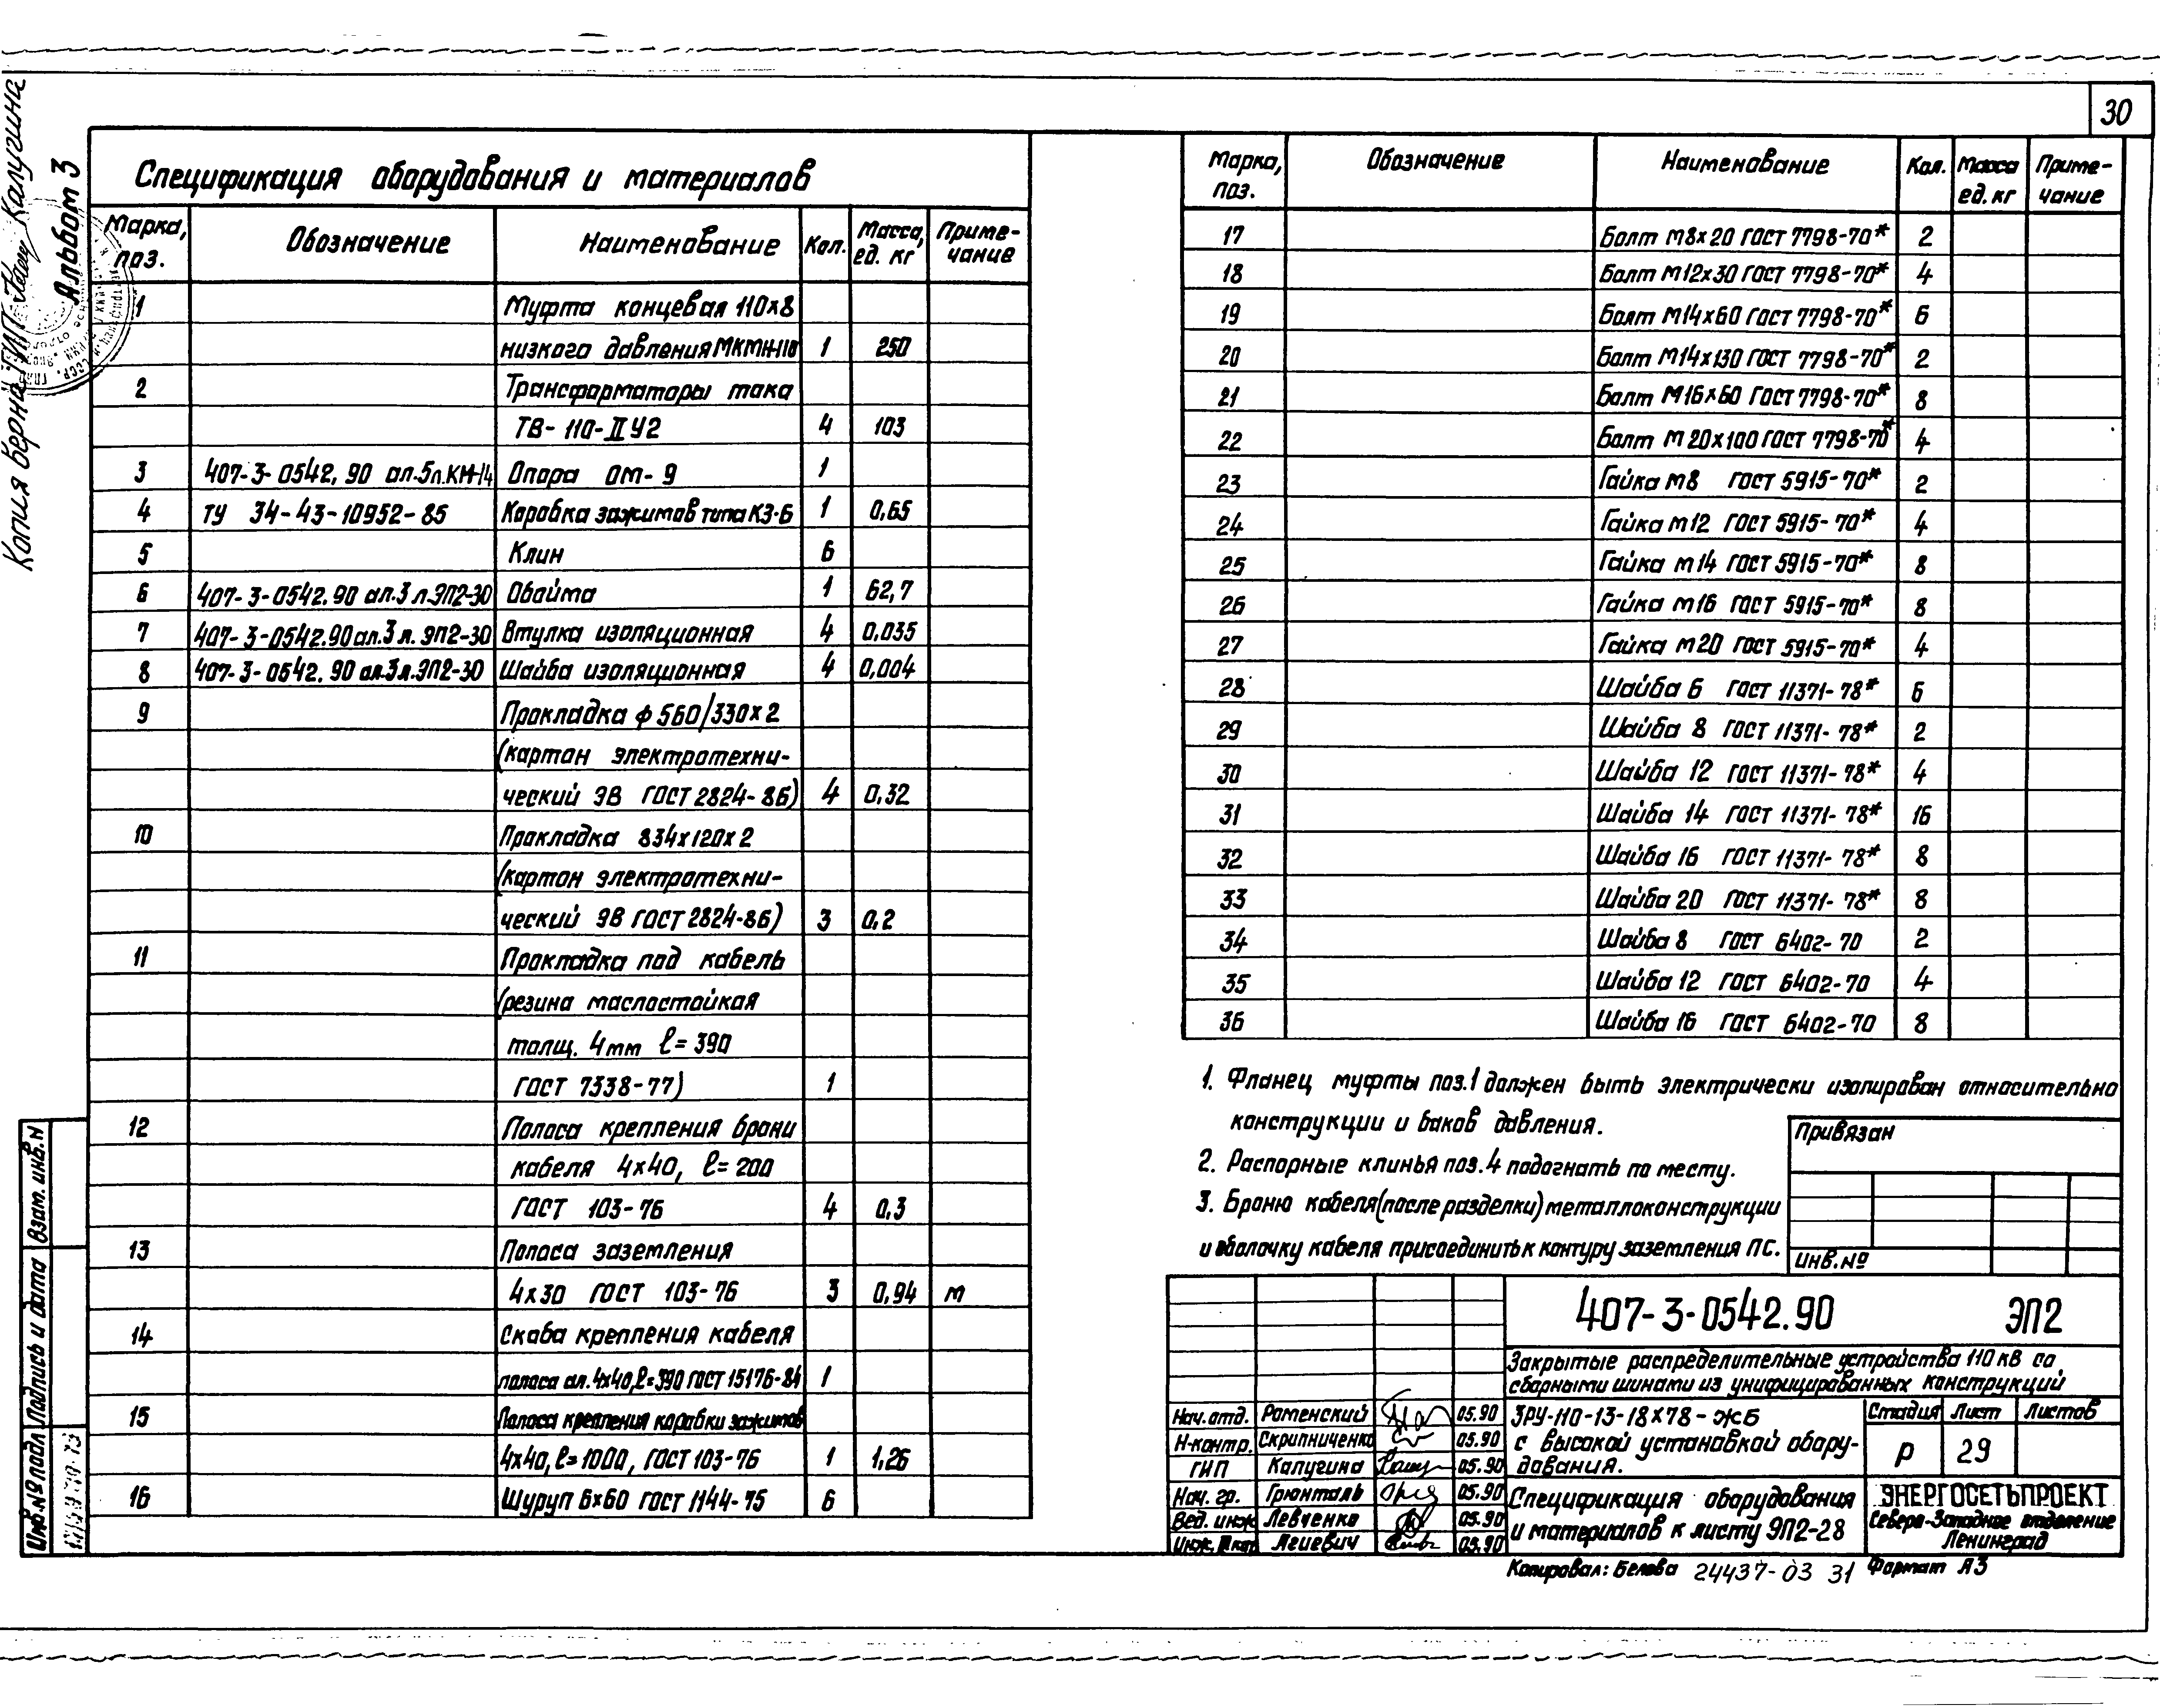 30
Копия верна ГИП Калугина
Альбом 3
Спецификация оборудования и материалов
Марка, поз. Обозначение Наименование Кол. Масса, ед. кг Приме-чание
1 Муфта концевая 110х8
низкого давления МКТН-110 1 250
2 Трансформаторы тока
ТВ-110-II У2 4 103
3 407-3-0542.90 ал.5л.КМ-14 Опора ОМ-9 1
4 ТУ 34-43-10952-85 Коробка зажимов типа КЗ-6 1 0,65
5 Клин 6
6 407-3-0542.90 ал.3 л.ЭП2-30 Обойма 1 62,7
7 407-3-0542.90 ал.3 л. ЭП2-30 Втулка изоляционная 4 0,035
8 407-3-0542.90 ал.3л.ЭП2-30 Шайба изоляционная 4 0,004
9 Прокладка ф 560/330х2
(картон электротехни-
ческий ЭВ ГОСТ 2824-86) 4 0,32
10 Прокладка 834х120х2
(картон электротехни-
ческий ЭВ ГОСТ 2824-86) 3 0,2
11 Прокладка под кабель
(резина маслостойкая
толщ. 4мм ℓ=390
ГОСТ 7338-77) 1
12 Полоса крепления брони
кабеля 4х40, ℓ=200
ГОСТ 103-76 4 0,3
13 Полоса заземления
4х30 ГОСТ 103-76 3 0,94 м
14 Скоба крепления кабеля
полоса ал. 4х40,ℓ=390 ГОСТ 15176-84 1
15 Полоса крепления коробки зажимов
4х40, ℓ=1000, ГОСТ 103-76 1 1,26
16 Шуруп 6х60 ГОСТ 1144-75 6
Марка, поз. Обозначение Наименование Кол. Масса ед. кг Приме-чание
17 Болт М8х20 ГОСТ 7798-70* 2
18 Болт М12х30 ГОСТ 7798-70* 4
19 Болт М14х60 ГОСТ 7798-70* 6
20 Болт М14х130 ГОСТ 7798-70* 2
21 Болт М16х60 ГОСТ 7798-70* 8
22 Болт М20х100 ГОСТ 7798-70* 4
23 Гайка М8 ГОСТ 5915-70* 2
24 Гайка М12 ГОСТ 5915-70* 4
25 Гайка М14 ГОСТ 5915-70* 8
26 Гайка М16 ГОСТ 5915-70* 8
27 Гайка М20 ГОСТ 5915-70* 4
28 Шайба 6 ГОСТ 11371-78* 6
29 Шайба 8 ГОСТ 11371-78* 2
30 Шайба 12 ГОСТ 11371-78* 4
31 Шайба 14 ГОСТ 11371-78* 16
32 Шайба 16 ГОСТ 11371-78* 8
33 Шайба 20 ГОСТ 11371-78* 8
34 Шайба 8 ГОСТ 6402-70 2
35 Шайба 12 ГОСТ 6402-70 4
36 Шайба 16 ГОСТ 6402-70 8
1. Фланец муфты поз.1 должен быть электрически изолирован относительно
конструкции и баков давления.
2. Распорные клинья поз.4 подогнать по месту.
3. Броню кабеля (после разделки) металлоконструкции
и оболочку кабеля присоединить к контуру заземления ПС.
Привязан
Инв.№
407-3-0542.90 ЭП2
Закрытые распределительные устройства 110 кВ со
сборными шинами из унифицированных конструкций
Нач.отд. Роменский 05.90
Н-контр. Скрипниченко 05.90
ГИП Калугина 05.90
Нач. гр. Грюнталь 05.90
Вед. инж Левченко 05.90
Инж. II кат Легевич 05.90
ЗРУ-110-13-18х78-ЖБ
с высокой установкой обору-
дования.
Стадия Лист Листов
Р 29
Спецификация оборудования
и материалов к листу ЭП2-28
ЭНЕРГОСЕТЬПРОЕКТ
Северо-Западное отделение
Ленинград
Копировал: Белова 24437-03 31 Формат А3
Взам. инв.N
Подпись и дата
Инв.№ подл.